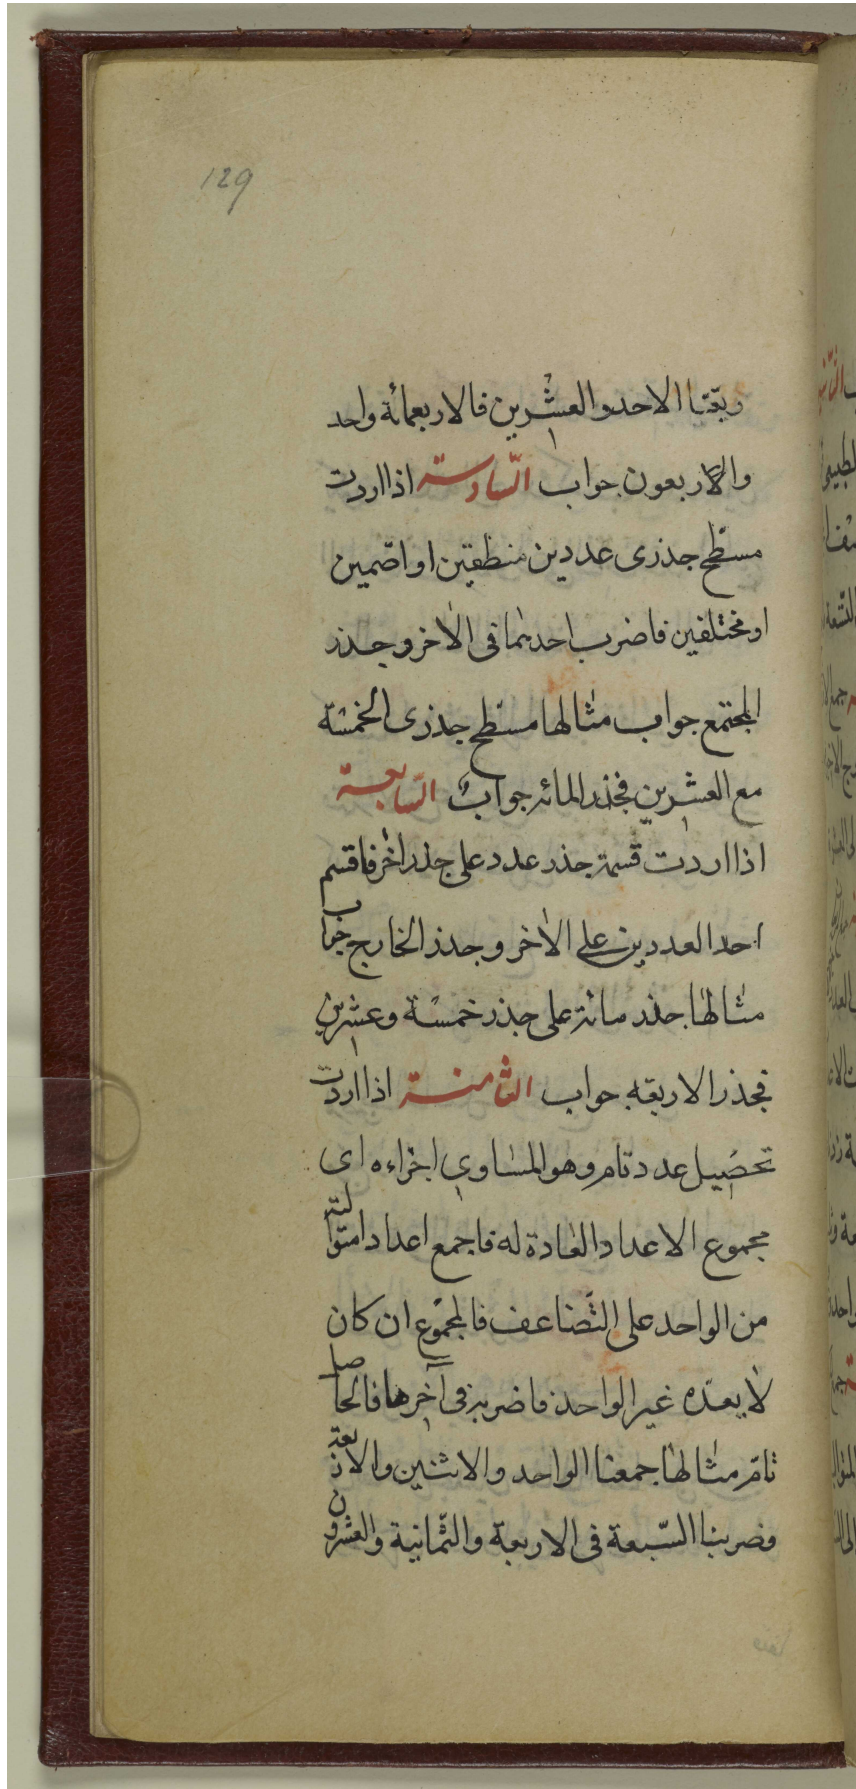 129
ربّعنا الاحد والعشرين فالاربعمائة واحد
والاربعون جواب السّادسة اذا اردت
مسطّح جذرى عددين منطقين او اصّمين
او مختلفين فاضرب احدهما فى الاخر وجذر
المجتمع جواب مثالها مسطّح جذرى الخمسة
مع العشرين فجذر المائه جواب السّابعة
اذا اردت قسمة جذر عدد على جذر اخر فاقسم
احد العددين على الاخر وجذر الخارج جواب
مثالها جذر مائة على جذر خمسة وعشرين
فجذر الاربعه جواب الثّامنة اذا اردت
تحصيل عدد تام وهو المساوى اجزاءه اى
مجموع الاعداد العادة له فاجمع اعدادا متوالية
من الواحد على التّضاعف فالمجموع ان كان
لا يعدّه غير الواحد فاضربه فى آخرها فالحاصل
تامّ مثالها جمعنا الواحد والاثنين والاربعة
وضربنا السّبعة فى الاربعة والثّمانية والعشرون